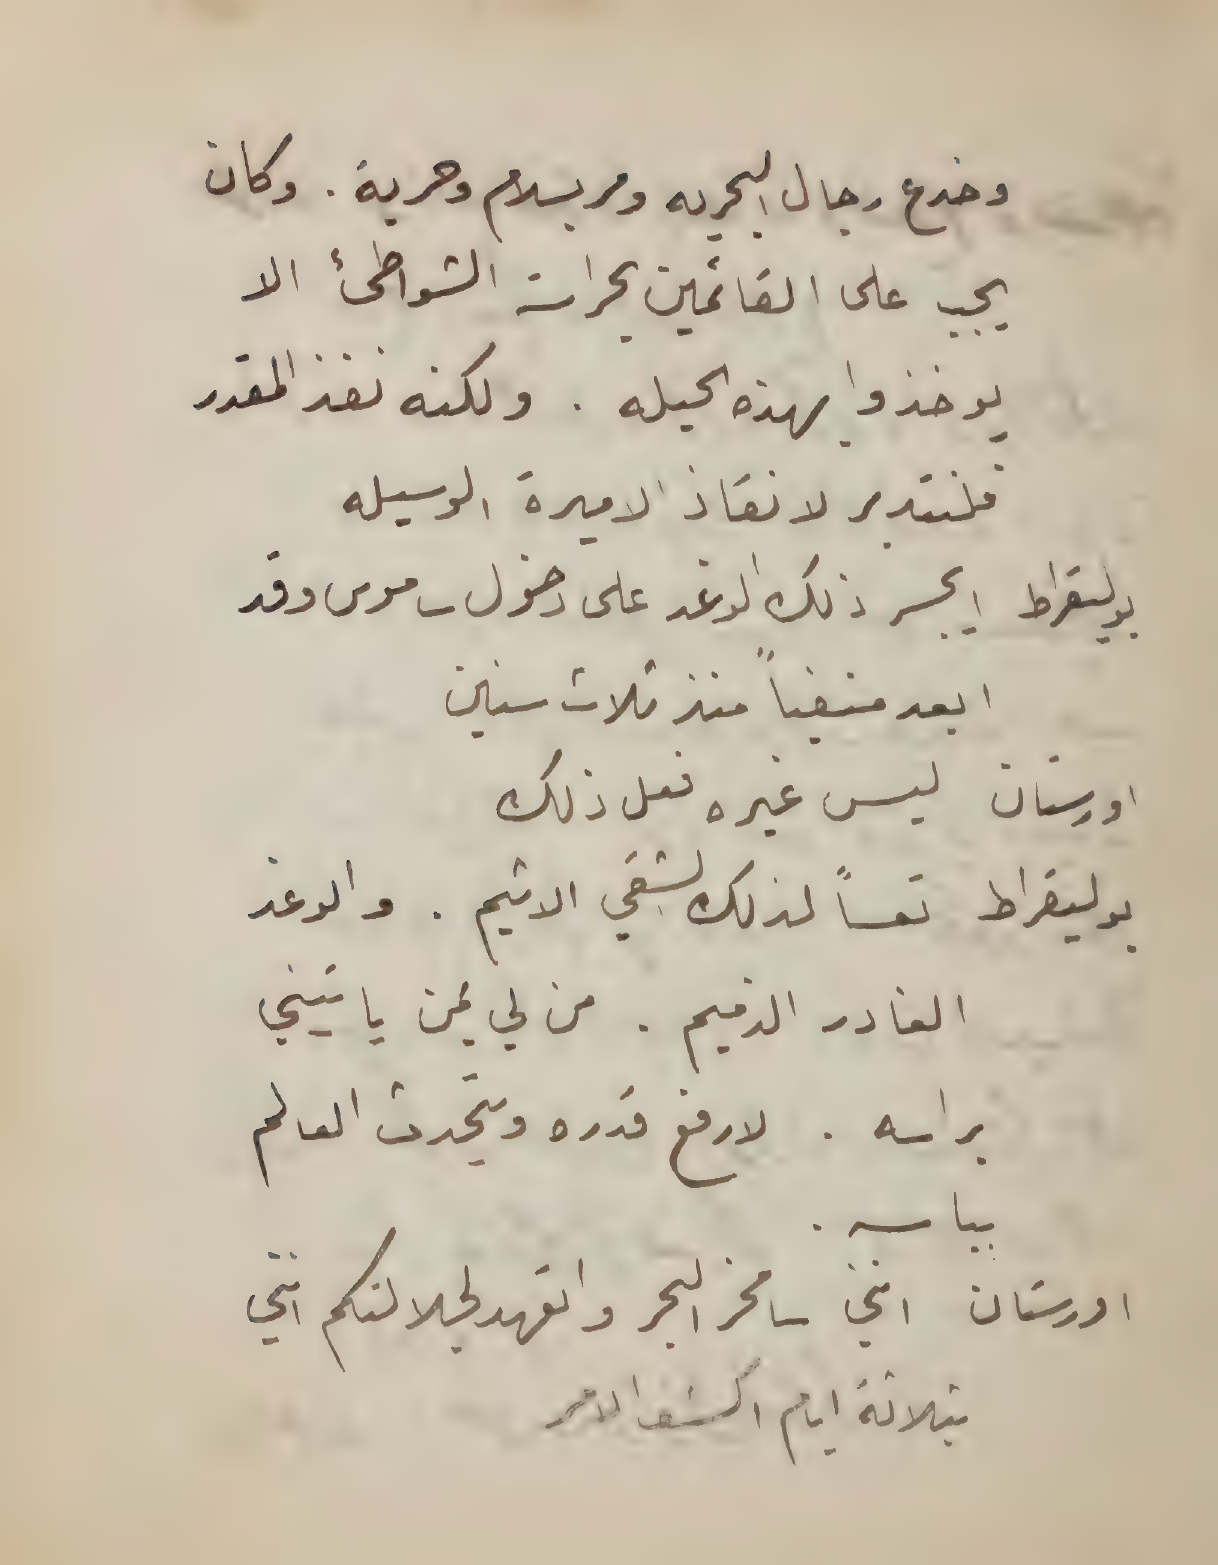 وخدع رجال البحريه ومر بسلام وحرية . وكان
يجب على القائمين بحراسة الشواطئ الا
يوخذوا بهذه الحيله . ولكنه نفذ المقدر
فلنتدبر لانقاذ الاميرة الوسيله
بوليقراط ايجسر ذلك الوغد على دخول ساموس وقد
ابعد منفياً منذ ثلاث سنين
اورستان ليس غيره فعل ذلك
بوليقراط تعساً لذلك الشقي الاثيم . والوغد
الغادر الذميم . من لي بمن ياتيني
براسه . لارفع قدره ويتحدث العالم
بباسه .
اورستان انني سامخر البحر واتعهد لجلالتكم انني
بثلاثة ايام اكشف الامر